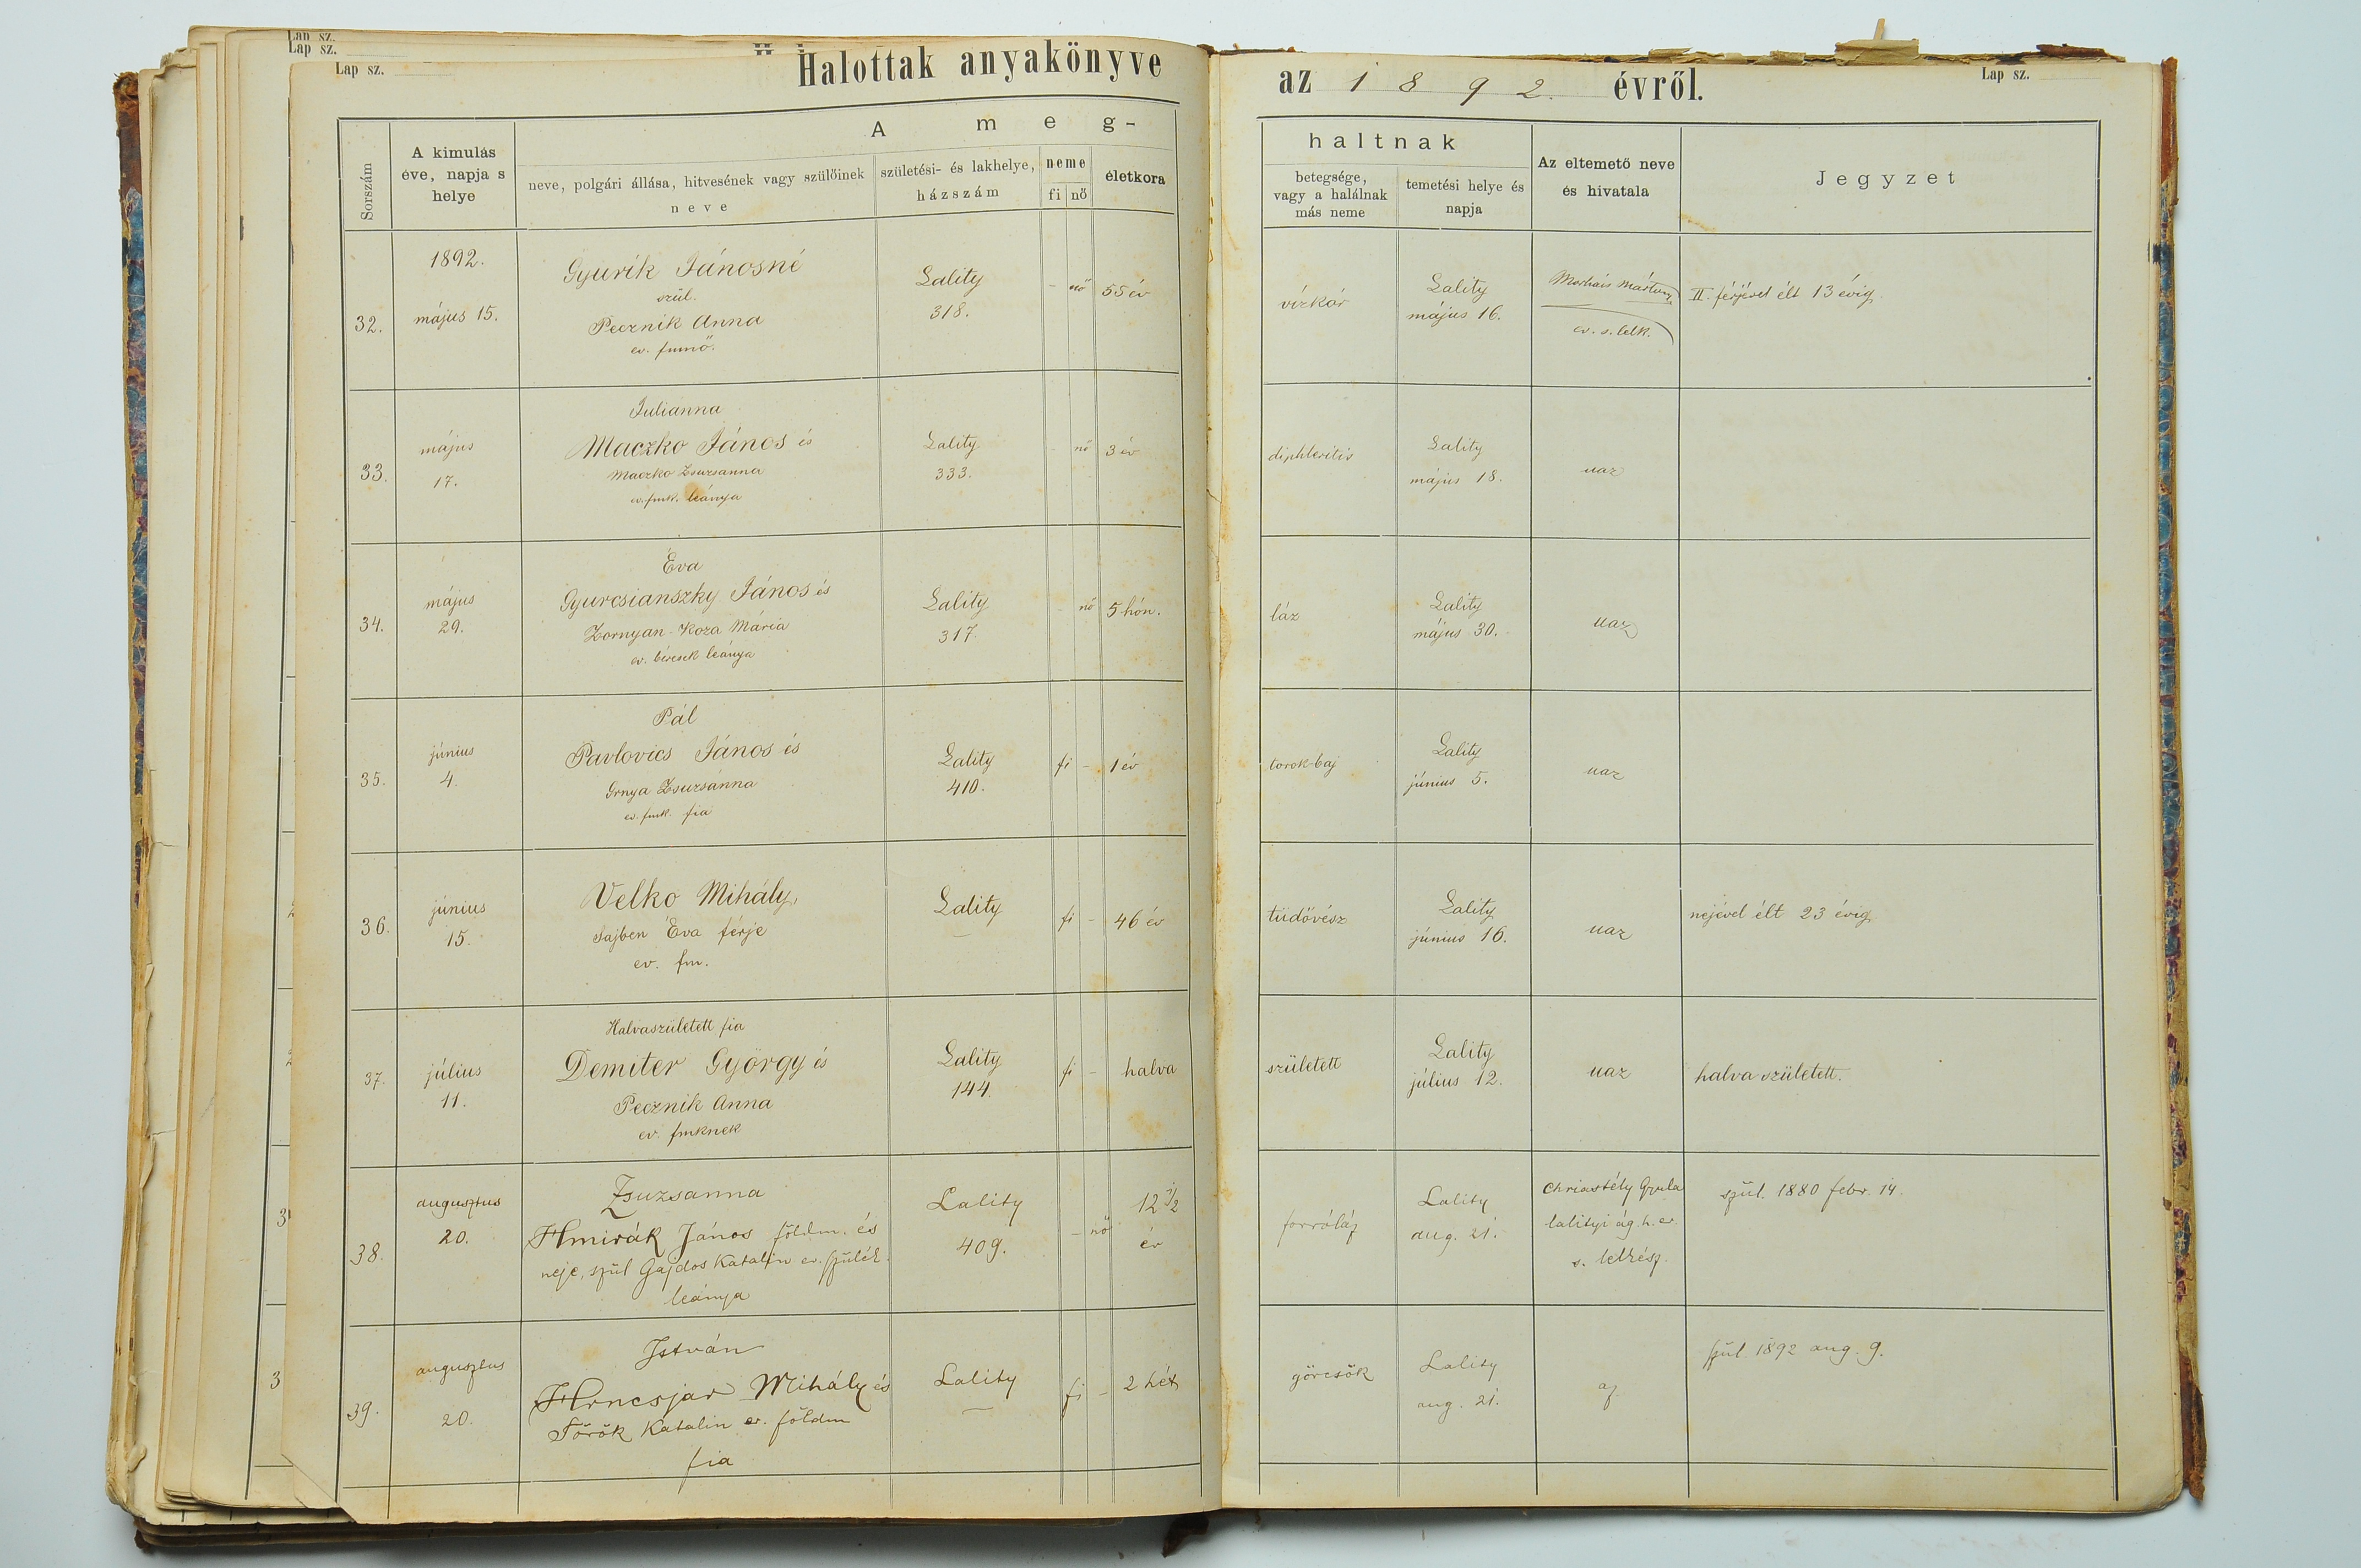 Lap sz.
Lap sz.
Lap sz.
Halottak anyakönyve
az 1892. évről.
Lap sz.
Sorszám
A kimulás
éve, napja s
helye
A meg-
neve, polgári állása, hitvesének vagy szülőinek
neve
születési- és lakhelye,
házszám
neme
fi nő
életkora
haltnak
betegsége,
vagy a halálnak
más neme
temetési helye és
napja
Az eltemető neve
és hivatala
Jegyzet
32.
1892.
május 15.
Gyurik Jánosné
szül.
Pecznik Anna
ev. fmnő.
Lality
318.
- nő
55 év
vízkór
Lality
május 16.
Márton
ev. s. lelk.
II. férjével élt 13 évig
33.
május
17.
Julianna
Maczko János és
Maczko Zsuzsanna
ev. fmk. leánya
Lality
333.
- nő
3 év
diphteritis
Lality
május 18.
uaz
34.
május
29.
Éva
Gyurcsianszky János és
Zornyan-Koza Mária
ev. béresek leánya
Lality
317.
- nő
5 hón.
láz
Lality
május 30.
uaz
35.
június
4.
Pál
Pavlovics János és
Grnya Zsuzsánna
ev. fmk. fia
Lality
410.
fi -
1 év
torok-baj
Lality
június 5.
uaz
36.
június
15.
Velko Mihály,
Sajben Éva férje
ev. fm.
Lality
—
fi -
46 év
tüdővész
Lality
június 16.
uaz
nejével élt 23 évig
37.
július
11.
Halvaszületett fia
Demiter György és
Pecznik Anna
ev. fmknek
Lality
144.
fi -
halva
született
Lality
július 12.
uaz
halva született.
38.
augusztus
20.
Zsuzsanna
Hmirák János földm. és
neje, szül Gajdos Katalin ev. szülék
leánya
Lality
409.
- nő
12 1/2
év
forróláz
Lality
aug. 21.
Chriastély Gyula
lalityi ág. h. ev.
s. lelkész.
szül. 1880 febr. 14.
39.
augusztus
20.
István
Hrncsjar Mihály és
Török Katalin ev. földm
fia
Lality
—
fi -
2 hét
görcsök
Lality
aug. 21.
az
szül. 1892 aug. 9.
3
3